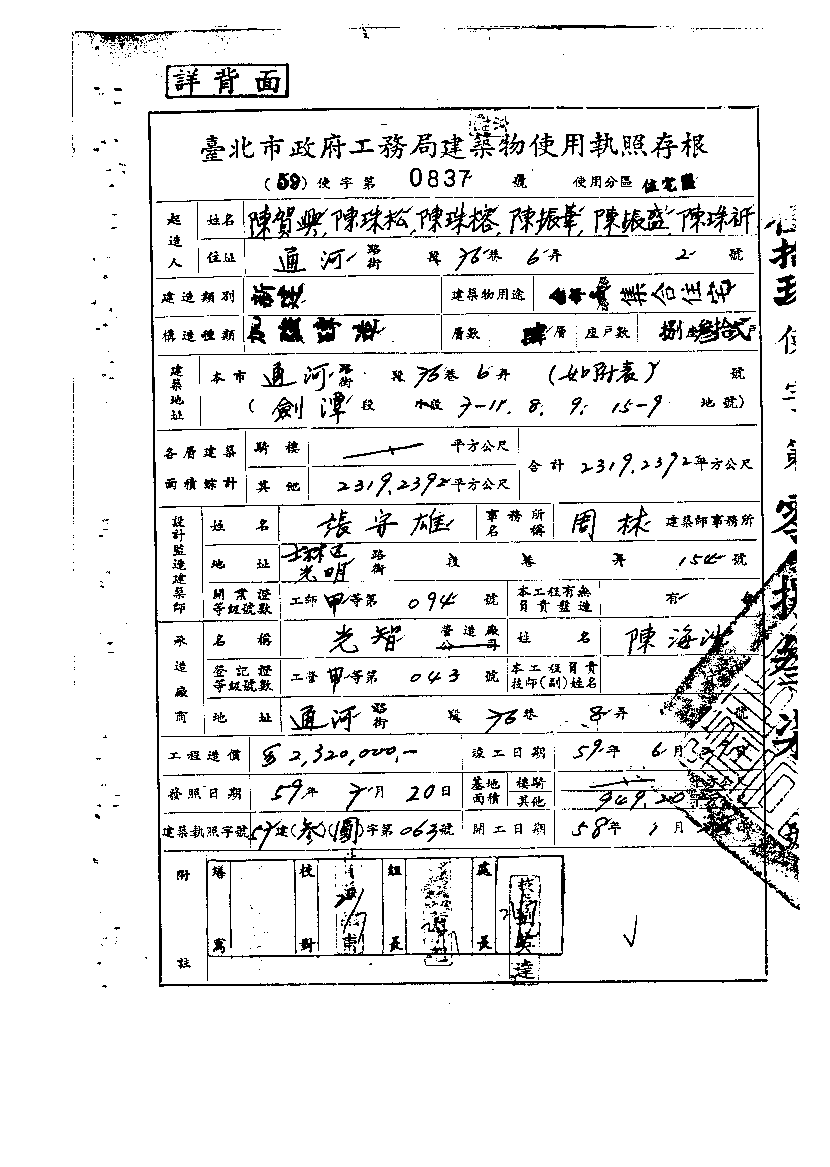 詳背面
臺北市政府工務局建築物使用執照存根
(59)使字第 0837 號 使用分區 住宅區
起造人 姓名 陳賀興, 陳珠松, 陳珠榕, 陳振華, 陳振盛, 陳珠訢
住址 通河 路街 段 巷 6 弄 2 號
建造類別 新建 建築物用途 集合住宅
構造種類 層數 肆層 座戶數 捌座叁拾貳戶
建築地址 本市 通河 路街 段 巷 6 弄 (如附表) 號
(劍潭段 小段 8. 9. 15-9 地號)
各層建築面積綜計 騎樓 平方公尺 合計 2319.2392平方公尺
其他 2319.2392平方公尺
設計監造建築師 姓名 張守雄 事務所名稱 周林 建築師事務所
地址 士林區光明 路街 段 巷 弄 154 號
開業證等級號數 工師甲等第 094 號 本工程有無負責監造 有
承造廠商 名稱 光智 營造廠公司 姓名 陳海
登記證等級號數 工營甲等第 043 號 本工程負責技師(副)姓名
地址 通河 路街 段 巷 8 弄 號
工程造價 2,320,000.- 竣工日期 59年 6月
發照日期 59年 7月 20日 基地面積 樓騎
其他 949.20
建築執照字號 建(叁)(圓)字第063號 開工日期 58年 1月
附註 繕寫 校對 組長 處長
使字第零